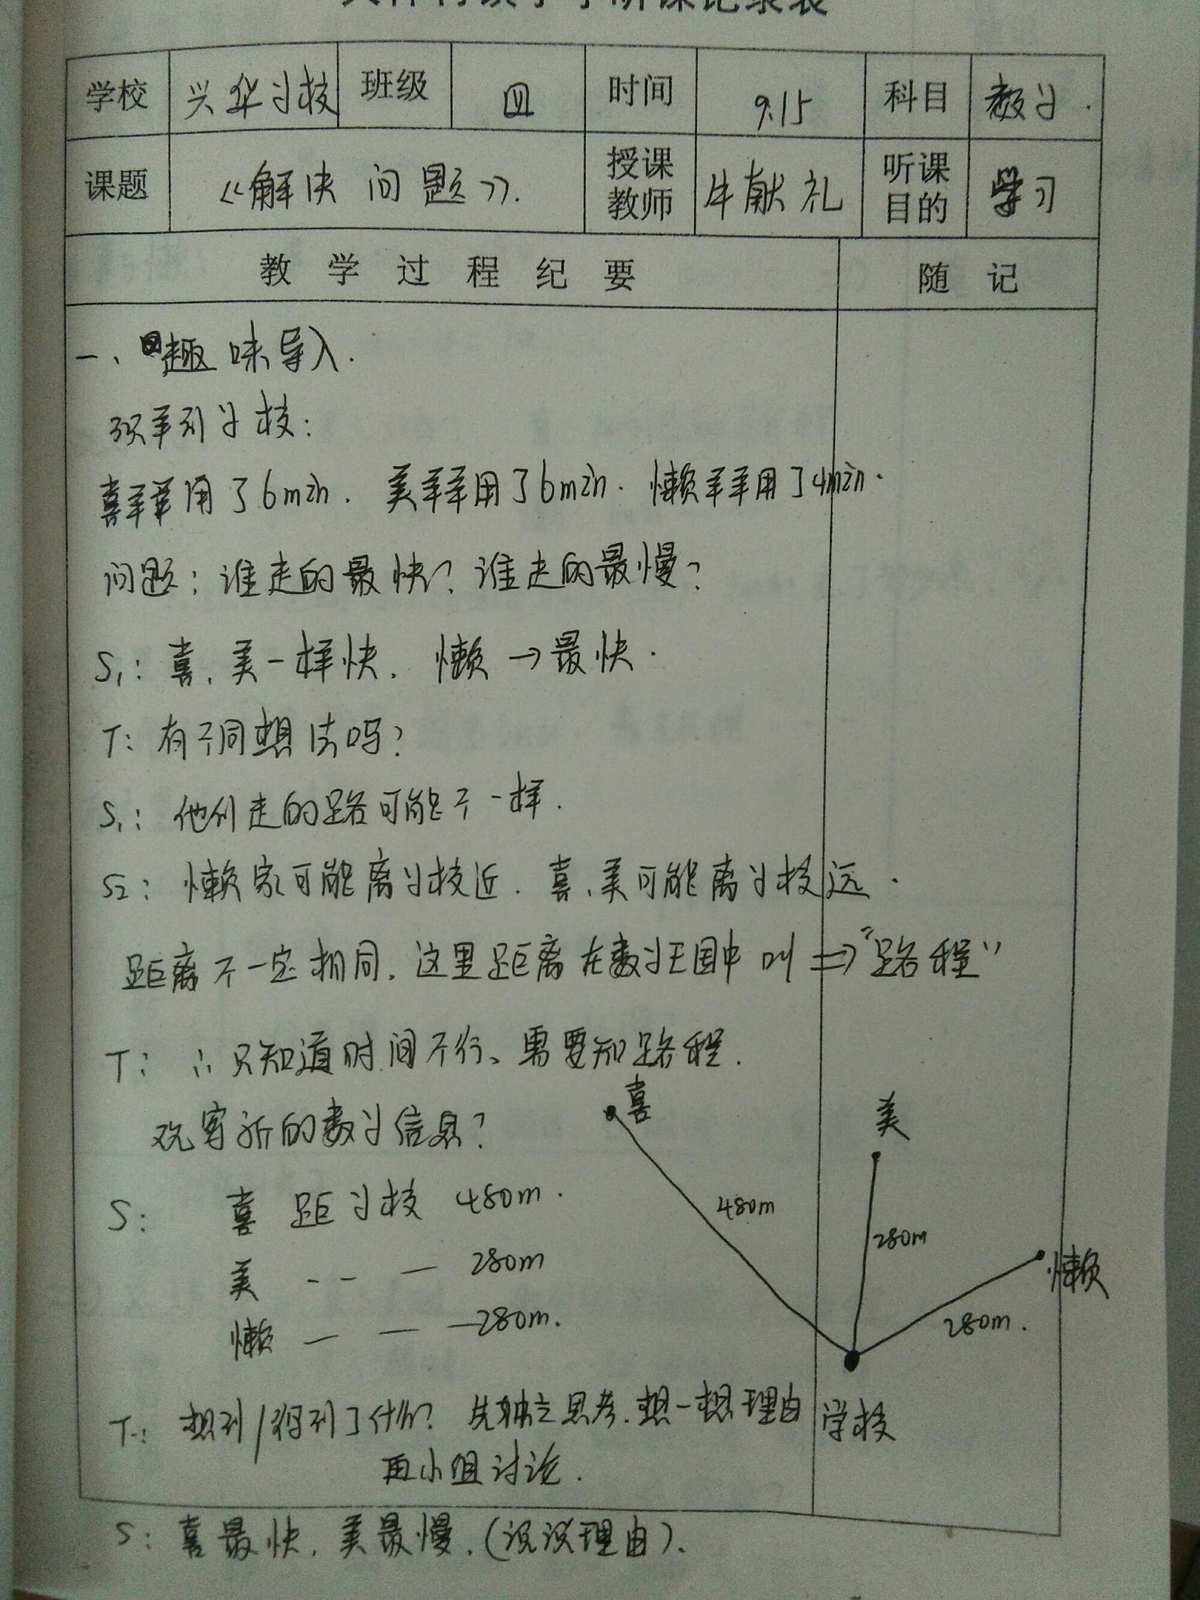 听课记录表
学校 兴华学校 班级 四 时间 9.15 科目 数学.
课题 《解决问题》. 授课教师 牛献礼 听课目的 学习
教学过程纪要 随记
一、趣味导入.
羊到学校:
喜羊羊用了6min. 美羊羊用了6min. 懒羊羊用了4min.
问题: 谁走的最快? 谁走的最慢?
S1: 喜、美一样快. 懒→最快.
T: 有不同想法吗?
S1: 他们走的路可能不一样.
S2: 懒家可能离学校近. 喜、美可能离学校远.
距离不一定相同. 这里距离在数学王国中叫⇒"路程"
T: ∴只知道时间不行、需要知路程.
观察新的数学信息?
喜
美
懒
480m
280m
280m.
学校
S: 喜 距学校 480m.
美 -- — 280m
懒 — — — 280m.
T: 想到/得到了什么? 先独立思考.想一想理由
再小组讨论.
S: 喜最快. 美最慢.(说说理由).